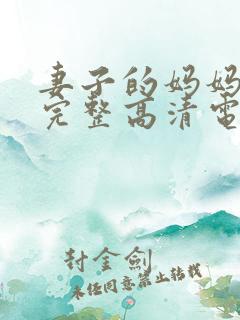 妻子的妈妈
完整高清电
封金剑
未经同意禁止转载